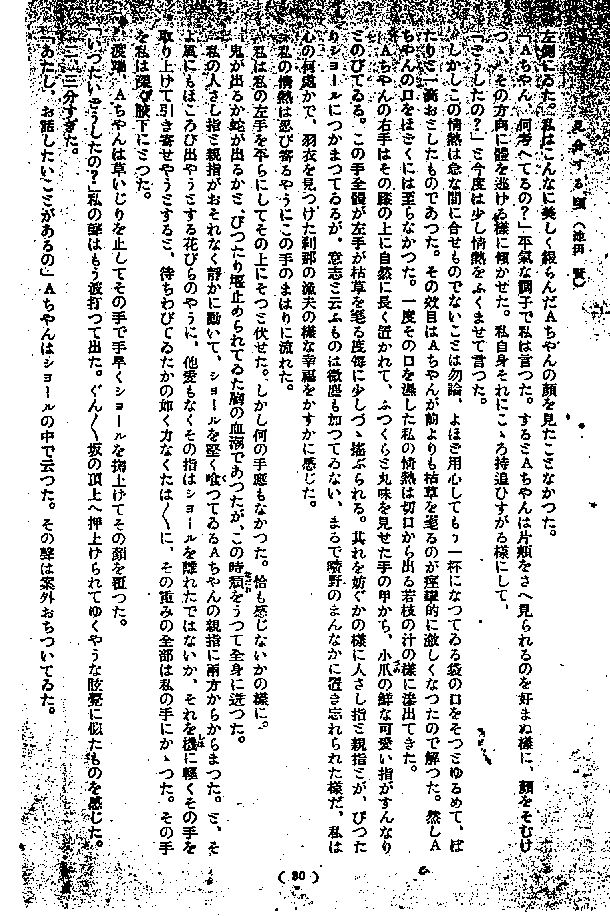 する頃（池田
左側にゐた。私はこんなに美しく銀らんだAちやんの顔を見たことなかつた。
「Aちやん、何考へてるの？」平氣な調子で私は言つた。するとAちやんは片頰をさへ見られるのを好まぬ樣に、顔をそむけ
つゝ、その方向に體を逃ける樣に傾かせた。私自身それにこゝろ持追ひすがる樣にして、
「どうしたの？」と今度は少し情熱をふくませて言つた。
しかしこの情熱は急な間に合せものでないことは勿論、よほど用心してもう一杯になつてゐる袋の口をそつとゆるめて、ぽ
たりと一滴おとしたものであつた。その效目はAちやんが前よりも枯草を毟るのが痙攣的に激しくなつたので解つた。然しA
ちやんの口をほごくには至らなかつた。一度その口を濕した私の情熱は切口から出る若枝の汁の樣に滲出てきた。
Aちやんの右手はその膝の上に自然に長く置かれて、ふつくらと丸味を見せた手の甲から、小爪の鮮な可愛い指がすんなり
とのびてゐる。この手全體が左手が枯草を毟る度每に少しづゝ搖ぶられる。其れを妨ぐかの樣に人さし指と親指とが、ぴつた
りショールにつかまつてゐるが、意志と云ふものは微塵も加つてゐない、まるで曠野のまんなかに置き忘れられた樣だ、私は
心の何處かで、羽衣を見つけた刹那の漁夫の樣な幸福をかすかに感じた。
私の情熱は忍び寄るやうにこの手のまはりに流れた。
私は私の左手を平らにしてその上にそつと伏せた。しかし何の手應もなかつた。恰も感じないかの樣に。
鬼が出るか蛇が出るかと、ぴつたり堰止められてゐた胸の血潮であつたが、この時頽をうつて全身に逆つた。
私の人さし指と親指がおそれなく靜かに動いて、ショールを堅く喰つてゐるAちやんの親指に兩方からからまつた。と、そ
よ風にもほころび出やうとする花びらのやうに、他愛もなくその指はショールを離れたではないか、それを機に輕くその手を
取り上げて引き寄せやうとすると、待ちわびてゐたかの如く力なくたは〱に、その重みの全部は私の手にかゝつた。その手
を私は深び腋下にとつた。
渡端、Aちやんは草いじりを止してその手で手早くショールを掬上げてその顔を覆つた。
「いつたいどうしたの？」私の聲はもう波打つて出た。ぐん〱坂の頂上へ押上げられてゆくやうな眩覺に似たものを感じた。
二、三分すぎた。
「あたし、お話したいことがあるの」Aちやんはショールの中で云つた。その聲は案外おちついてゐた。
（80）